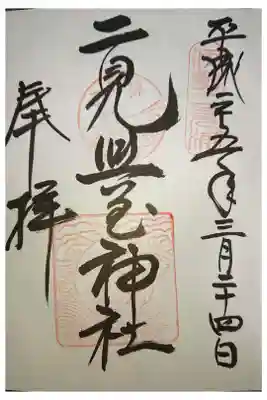 平成二十五年三月二十四日
二見興玉神社
奉拝